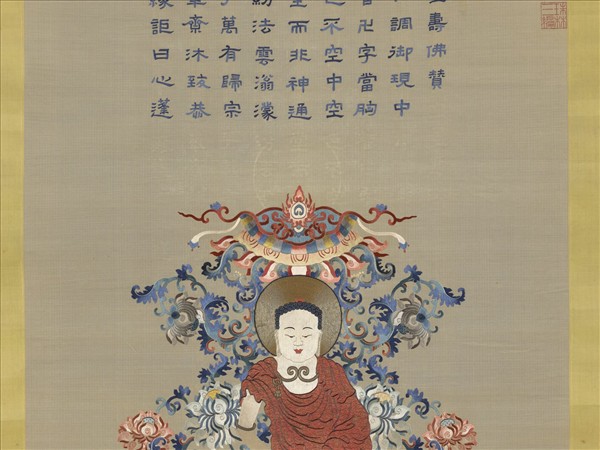 壽佛贊
調御現中
卍字當胸
不空中空
而非神通
紛法雲滃濛
萬有歸宗
齋沐致恭
緣詎曰心蓬